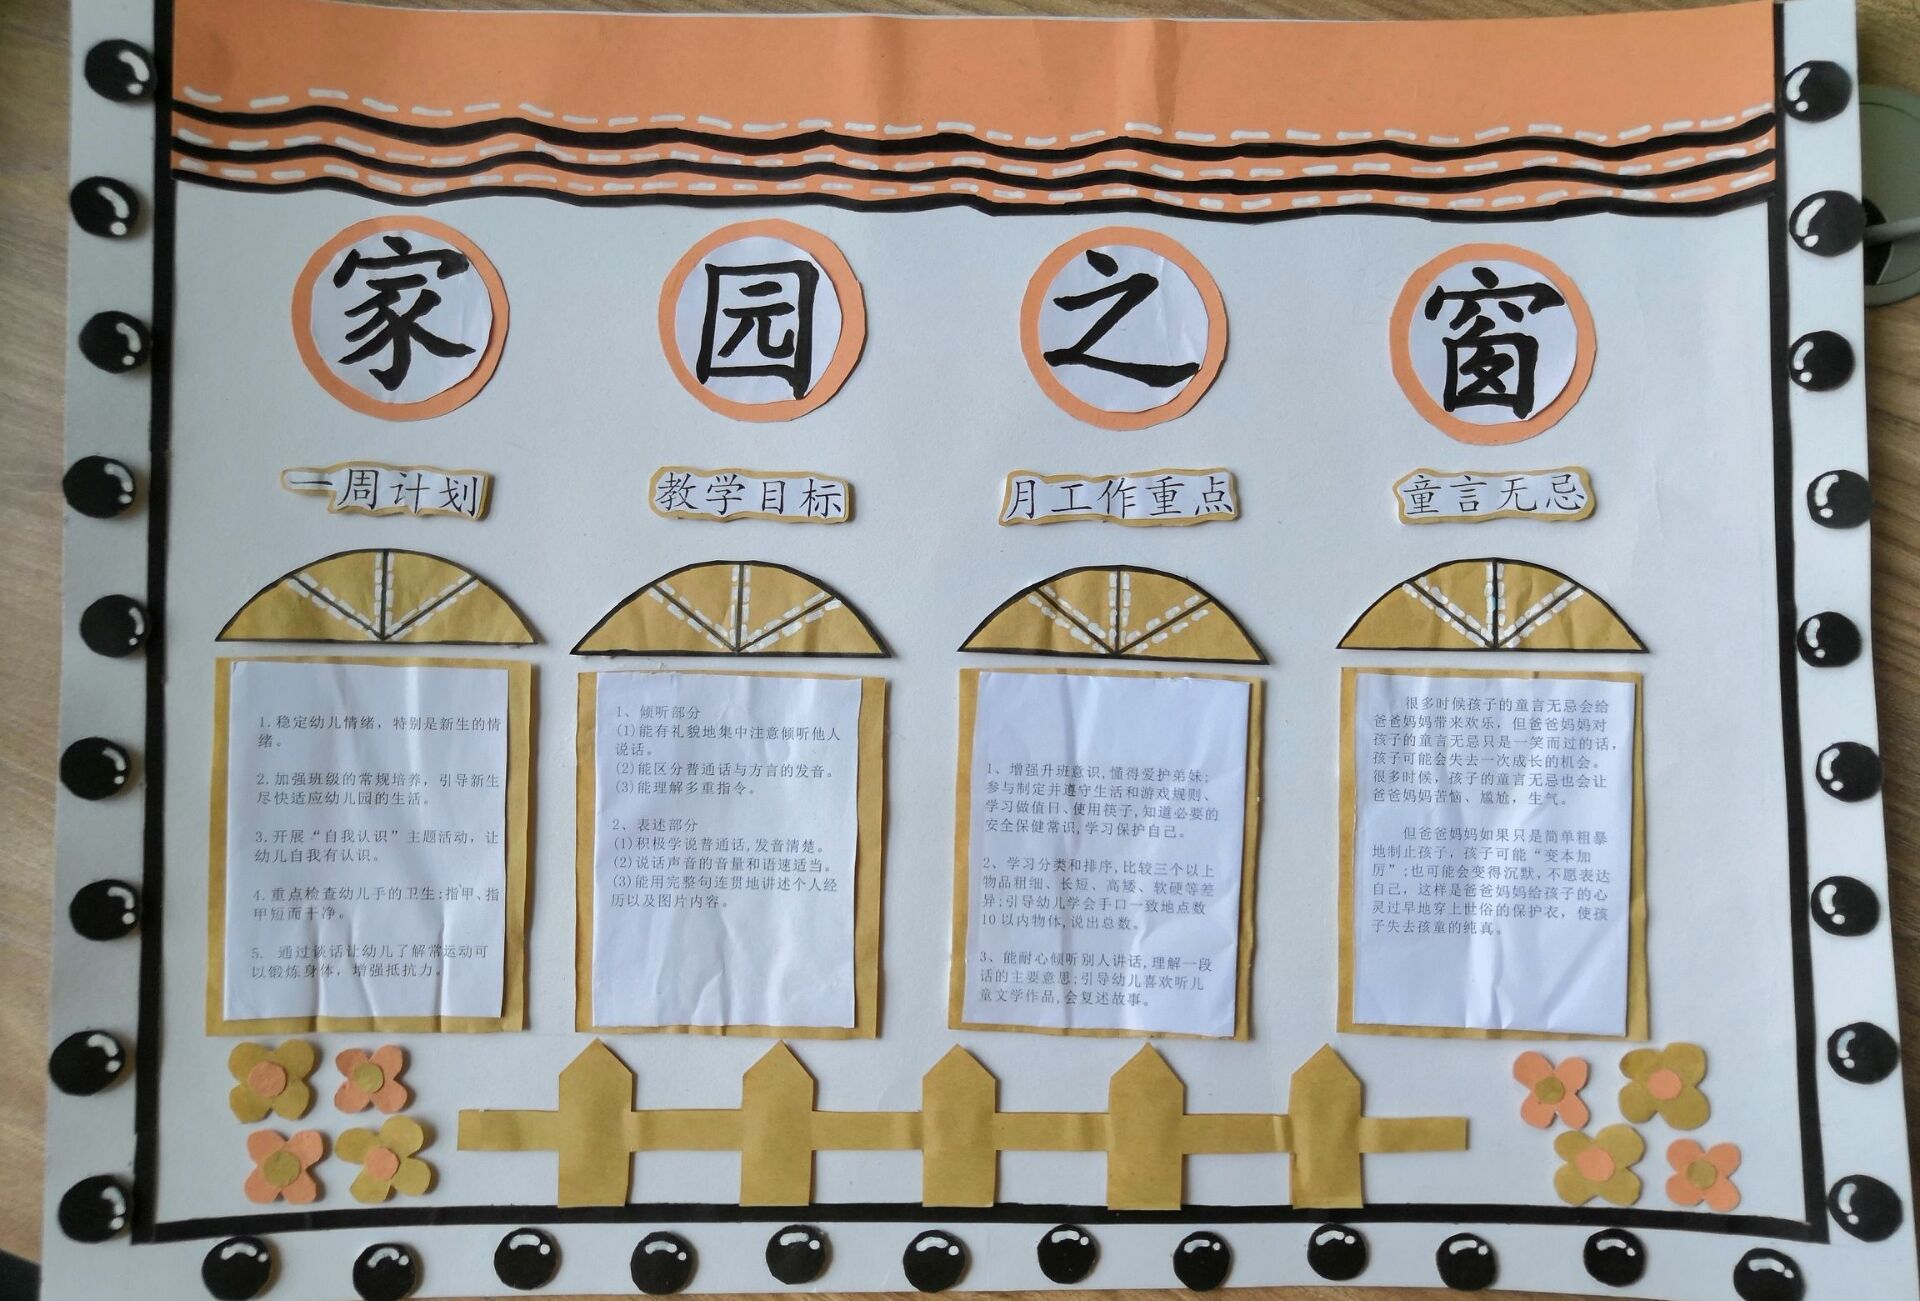 家园之窗
一周计划
教学目标
月工作重点
童言无忌
1.稳定幼儿情绪，特别是新生的情
绪。
2.加强班级的常规培养，引导新生
尽快适应幼儿园的生活。
3.开展“自我认识”主题活动，让
幼儿自我有认识。
4.重点检查幼儿手的卫生:指甲、指
甲短而干净。
5. 通过谈话让幼儿了解常运动可
以锻炼身体，增强抵抗力。
1、倾听部分
(1)能有礼貌地集中注意倾听他人
说话。
(2)能区分普通话与方言的发音。
(3)能理解多重指令。
2、表述部分
(1)积极学说普通话,发音清楚。
(2)说话声音的音量和语速适当。
(3)能用完整句连贯地讲述个人经
历以及图片内容。
1、增强升班意识,懂得爱护弟妹;
参与制定并遵守生活和游戏规则、
学习做值日、使用筷子,知道必要的
安全保健常识,学习保护自己。
2、学习分类和排序,比较三个以上
物品粗细、长短、高矮、软硬等差
异;引导幼儿学会手口一致地点数
10以内物体,说出总数。
3、能耐心倾听别人讲话,理解一段
话的主要意思;引导幼儿喜欢听儿
童文学作品,会复述故事。
很多时候孩子的童言无忌会给
爸爸妈妈带来欢乐，但爸爸妈妈对
孩子的童言无忌只是一笑而过的话，
孩子可能会失去一次成长的机会。
很多时候，孩子的童言无忌也会让
爸爸妈妈苦恼、尴尬，生气。
但爸爸妈妈如果只是简单粗暴
地制止孩子，孩子可能“变本加
厉”;也可能会变得沉默,不愿表达
自己，这样是爸爸妈妈给孩子的心
灵过早地穿上世俗的保护衣，使孩
子失去孩童的纯真。